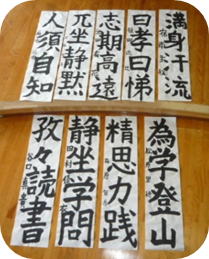 満身干流
曰孝曰悌
志期高遠
兀坐静黙
人須自知
為学登山
精思力践
静坐学問
孜々読書